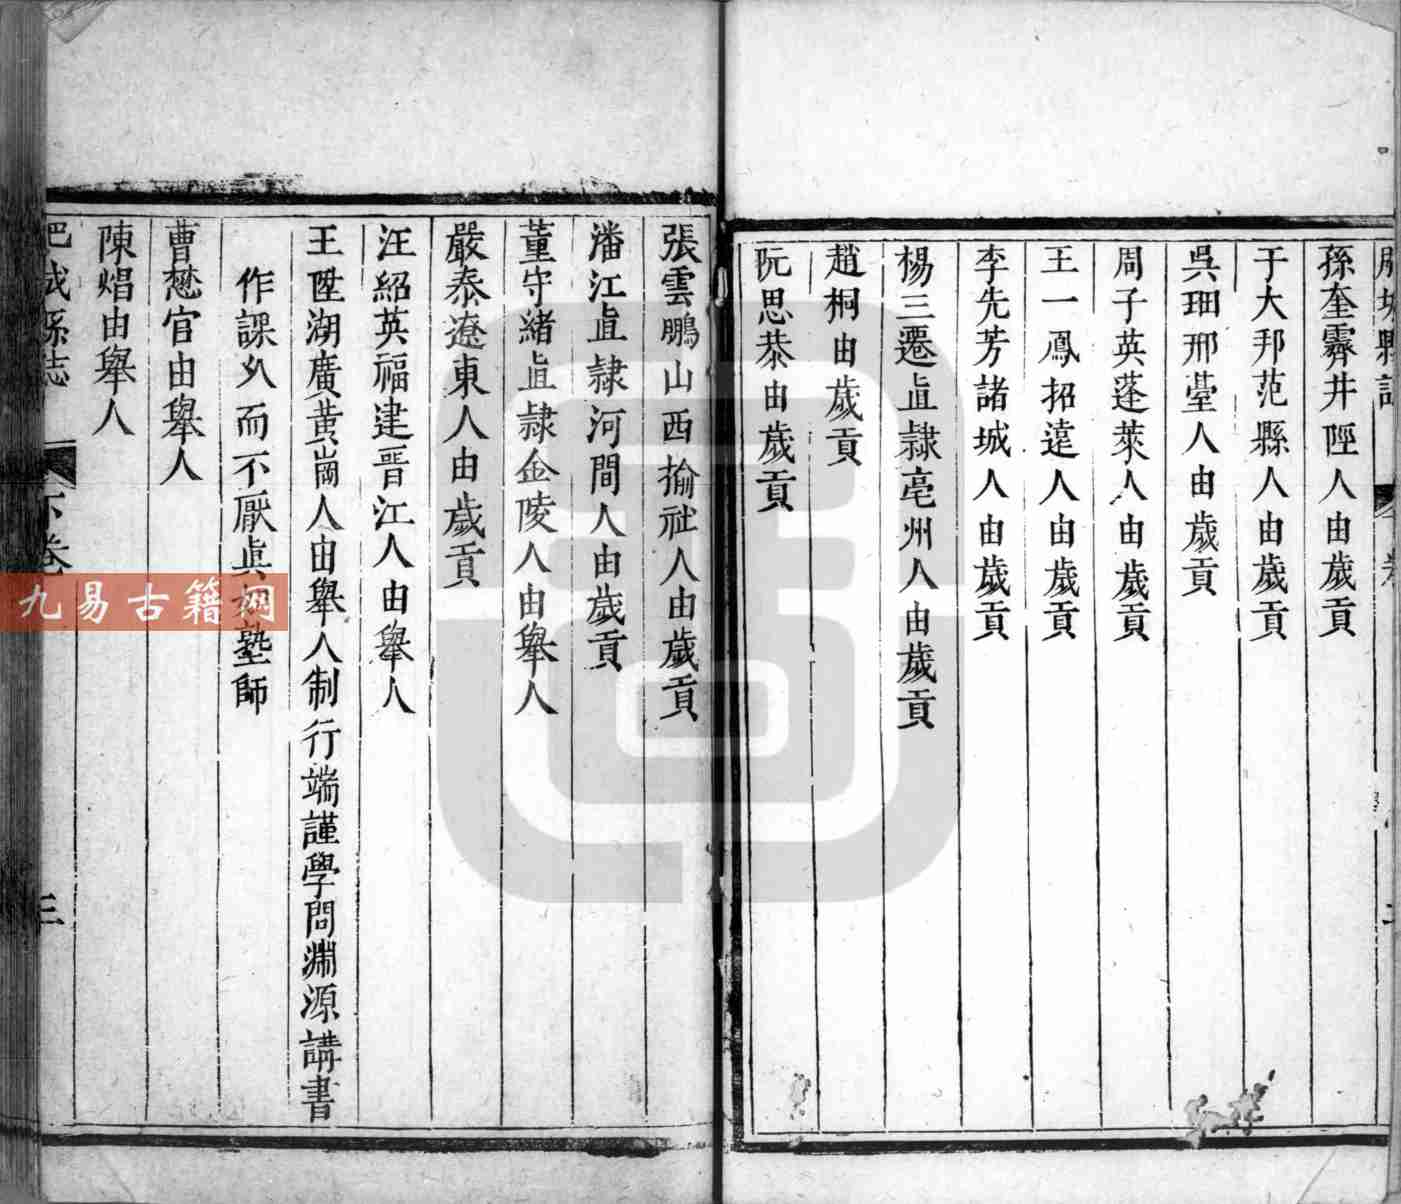 孫奎霽井陘人由歲貢
于大邦范縣人由歲貢
吳珊邢臺人由歲貢
周子英蓬萊人由歲貢
王一鳳招遠人由歲貢
李先芳諸城人由歲貢
楊三遷直隷亳州人由歲貢
趙桐由歲貢
阮思恭由歲貢
張雲鵬山西揄社人由歲貢
潘江直隷河間人由歲貢
董守緒直隷金陵人由舉人
嚴泰遼東人由歲貢
汪紹英福建晋江人由舉人
王陞湖廣黃崗人由舉人制行端謹學問淵源講書
作課久而不厭眞塾師
曹懋官由舉人
陳焻由舉人
縣志
下卷
三
九易古籍网